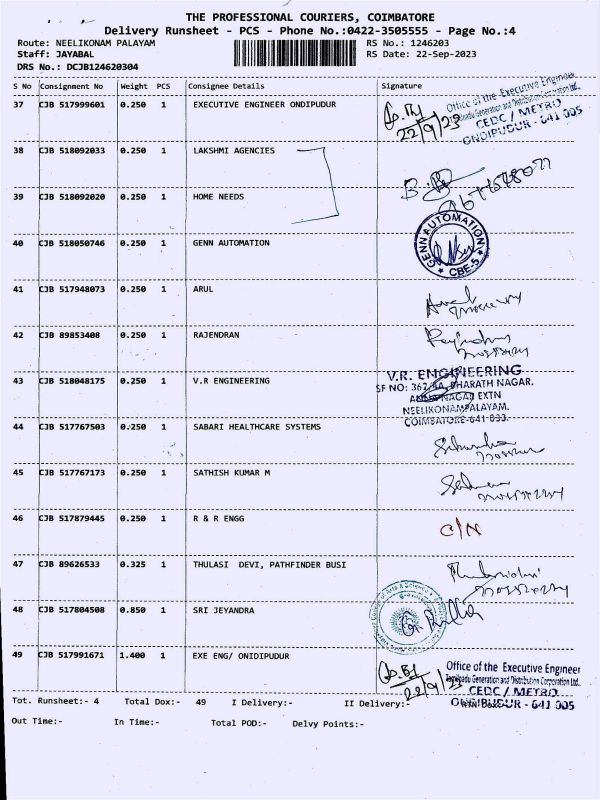 THE PROFESSIONAL COURIERS, COIMBATORE
Delivery Runsheet - PCS - Phone No.:0422-3505555 - Page No.:4
Route: NEELIKONAM PALAYAM RS No.: 1246203
Staff: JAYABAL RS Date: 22-Sep-2023
DRS No.: DCJB124620304
S No Consignment No Weight PCS Consignee Details Signature
37 CJB 517999601 0.250 1 EXECUTIVE ENGINEER ONDIPUDUR
Office of the Executive Engineer
Generation and Distribution Corporation Ltd.
CEDC / METRO
ONDIPUDUR - 641 005
22/9/23
38 CJB 518092033 0.250 1 LAKSHMI AGENCIES
39 CJB 518092020 0.250 1 HOME NEEDS
40 CJB 518050746 0.250 1 GENN AUTOMATION
GENN AUTOMATION
CBE-5
41 CJB 517948073 0.250 1 ARUL
42 CJB 89853408 0.250 1 RAJENDRAN
43 CJB 518048175 0.250 1 V.R ENGINEERING
V.R. ENGINEERING
SF NO: 362/ BHARATH NAGAR,
NAGAR EXTN
NEELIKONAMPALAYAM,
COIMBATORE-641 033.
44 CJB 517767503 0.250 1 SABARI HEALTHCARE SYSTEMS
45 CJB 517767173 0.250 1 SATHISH KUMAR M
46 CJB 517879445 0.250 1 R & R ENGG C/N
47 CJB 89626533 0.325 1 THULASI DEVI, PATHFINDER BUSI
48 CJB 517804508 0.850 1 SRI JEYANDRA
49 CJB 517991671 1.400 1 EXE ENG/ ONIDIPUDUR
Office of the Executive Engineer
Generation and Distribution Corporation Ltd.
CEDC / METRO
ONDIPUDUR - 641 005
22/9/23
Tot. Runsheet:- 4 Total Dox:- 49 I Delivery:- II Delivery:-
Out Time:- In Time:- Total POD:- Delvy Points:-